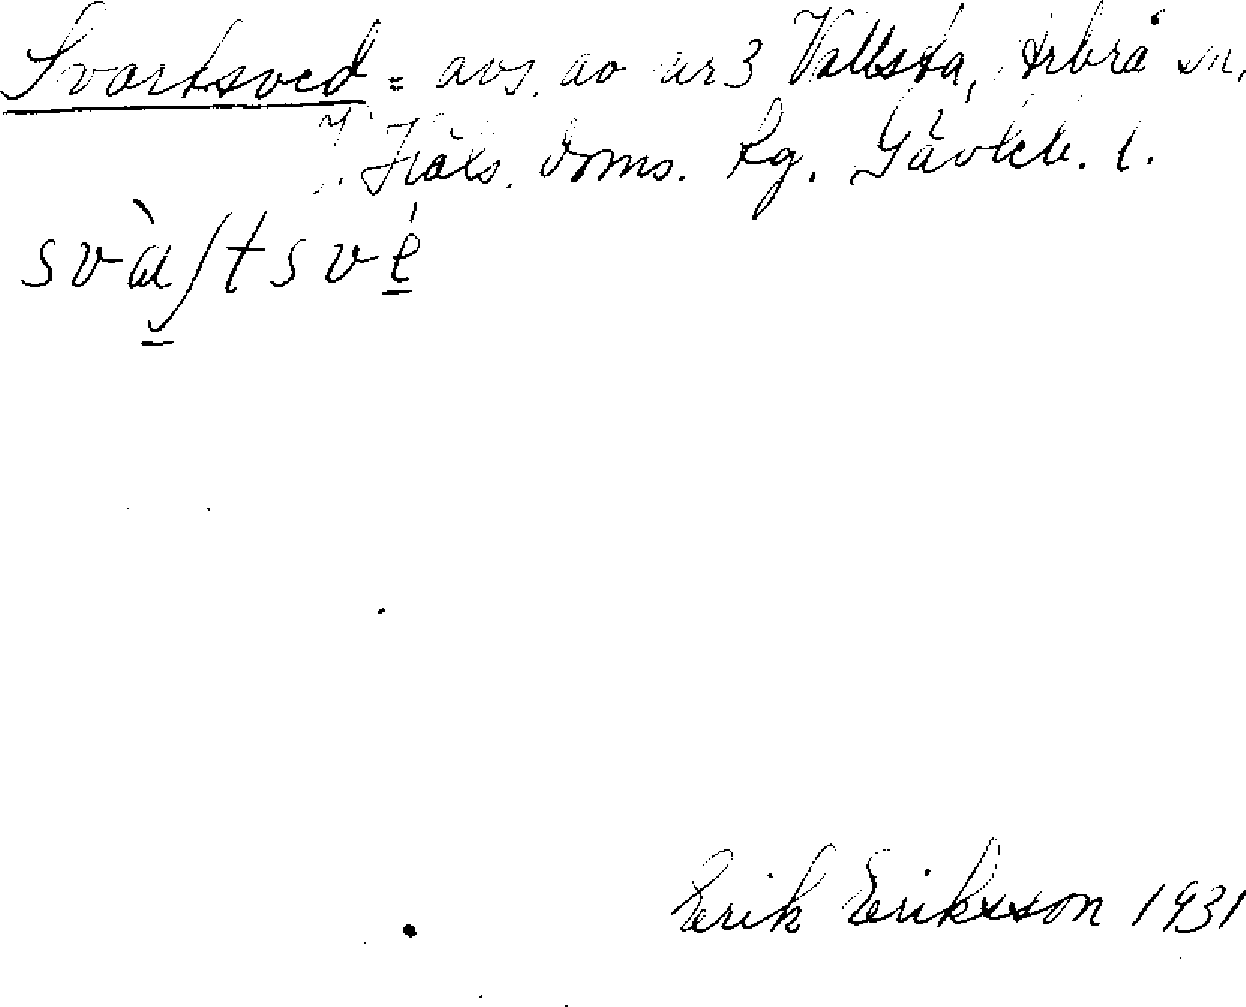 Svartsved = avs. av nr 3 Vallsta, Arbrå sn,
V. Häls. doms. hg. Gävleb. l.
svàʃtsvé
Erik Eriksson 1931